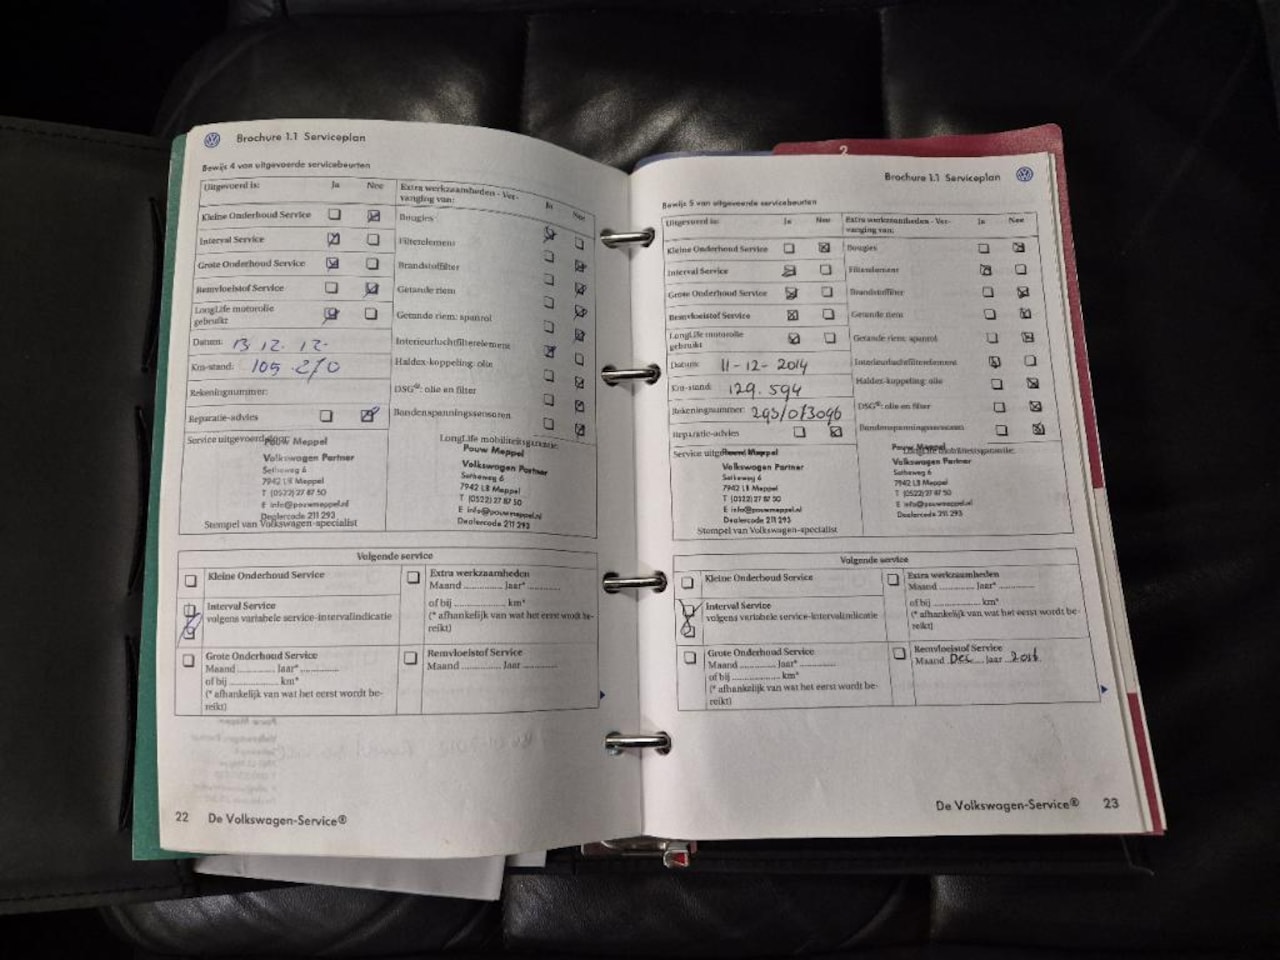 Brochure 1.1 Serviceplan
Bewijs 4 van uitgevoerde servicebeurten
Uitgevoerd is: Ja Nee
Kleine Onderhoud Service
Interval Service
Grote Onderhoud Service
Remvloeistof Service
LongLife motorolie
gebruikt
Datum: 13.12.12-
Km-stand: 105.270
Rekeningnummer:
Reparatie-advies
Extra werkzaamheden - Ver-
vanging van: Ja Nee
Bougies
Filterelement
Brandstoffilter
Getande riem
Getande riem: spanrol
Interieurluchtfilterelement
Haldex-koppeling: olie
DSG®: olie en filter
Bandenspanningssensoren
Service uitgevoerd door:
Pouw Meppel
Volkswagen Partner
Setheweg 6
7942 LB Meppel
T (0522) 27 87 50
E info@pouwmeppel.nl
Dealercode 211 293
Stempel van Volkswagen-specialist
LongLife mobiliteitsgarantie:
Pouw Meppel
Volkswagen Partner
Setheweg 6
7942 LB Meppel
T (0522) 27 87 50
E info@pouwmeppel.nl
Dealercode 211 293
Volgende service
Kleine Onderhoud Service
Interval Service
volgens variabele service-intervalindicatie
Grote Onderhoud Service
Maand ............ Jaar* ............
of bij ............ km*
(* afhankelijk van wat het eerst wordt be-
reikt)
Extra werkzaamheden
Maand ............ Jaar* ............
of bij ............ km*
(* afhankelijk van wat het eerst wordt be-
reikt)
Remvloeistof Service
Maand ............ Jaar ............
22 De Volkswagen-Service®
2
Brochure 1.1 Serviceplan
Bewijs 5 van uitgevoerde servicebeurten
Uitgevoerd is: Ja Nee
Kleine Onderhoud Service
Interval Service
Grote Onderhoud Service
Remvloeistof Service
LongLife motorolie
gebruikt
Datum: 11-12-2014
Km-stand: 129.594
Rekeningnummer: 293/073096
Reparatie-advies
Extra werkzaamheden - Ver-
vanging van: Ja Nee
Bougies
Filterelement
Brandstoffilter
Getande riem
Getande riem: spanrol
Interieurluchtfilterelement
Haldex-koppeling: olie
DSG®: olie en filter
Bandenspanningssensoren
Pouw Meppel
Volkswagen Partner
Setheweg 6
7942 LB Meppel
T (0522) 27 87 50
E info@pouwmeppel.nl
Dealercode 211 293
Stempel van Volkswagen-specialist
LongLife mobiliteitsgarantie:
Pouw Meppel
Volkswagen Partner
Setheweg 6
7942 LB Meppel
T (0522) 27 87 50
E info@pouwmeppel.nl
Dealercode 211 293
Volgende service
Kleine Onderhoud Service
Interval Service
volgens variabele service-intervalindicatie
Grote Onderhoud Service
Maand ............ Jaar* ............
of bij ............ km*
(* afhankelijk van wat het eerst wordt be-
reikt)
Extra werkzaamheden
Maand ............ Jaar* ............
of bij ............ km*
(* afhankelijk van wat het eerst wordt be-
reikt)
Remvloeistof Service
Maand Dec Jaar 2016
De Volkswagen-Service® 23